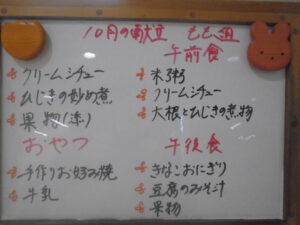 10月の献立 もも組
クリームシチュー
ひじきの炒め煮
果物(梨)
おやつ
手作りお好み焼
牛乳
午前食
米粥
クリームシチュー
大根とひじきの煮物
午後食
きなこおにぎり
豆腐のみそ汁
果物